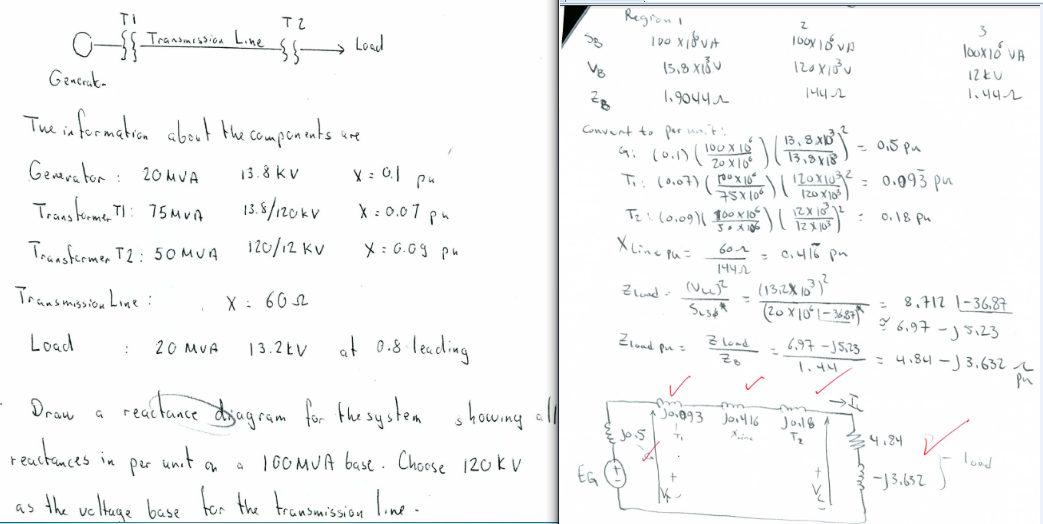 T1
T2
Transmission Line
Load
Generat.
The information about the components are
Generator : 20MVA 13.8 KV X = 0.1 pu
Transformer T1: 75MVA 13.8/120KV X = 0.07 pu
Transformer T2: 50 MVA 120/12 KV X = 0.09 pu
Transmission Line : X = 60Ω
Load : 20 MVA 13.2KV at 0.8 leading
Draw a reactance diagram for the system showing all
reactances in per unit on a 100MVA base. Choose 120KV
as the voltage base for the transmission line.
Region 1 2 3
S_B 100 x10^6 VA 100x10^6 VA 100x10^6 VA
V_B 13.8 x10^3 V 120x10^3 V 12KV
Z_B 1.9044Ω 144Ω 1.44Ω
Convert to per unit:
G: (0.1) (100x10^6 / 20x10^6) (13.8x10^3 / 13.8x10^3)^2 = 0.5 pu
T1: (0.07) (100x10^6 / 75x10^6) (120x10^3 / 120x10^3)^2 = 0.093̄ pu
T2: (0.09) (100x10^6 / 50x10^6) (12x10^3 / 12x10^3)^2 = 0.18 pu
X Line pu = 60Ω / 144Ω = 0.416̄ pu
Z load = (V_LL)^2 / S_L3ø* = (13.2x10^3)^2 / (20x10^6 ∠-36.87)* = 8.712 ∠-36.87
≅ 6.97 - j5.23
Z load pu = Z load / Z_B = 6.97 - j5.23 / 1.44 = 4.84 - j3.632 pu
j0.093 j0.416 j0.18 → I_L
T1 X Line T2
j0.5
4.84
E_G
+
-
+
V
+
V_L
-j3.632
load